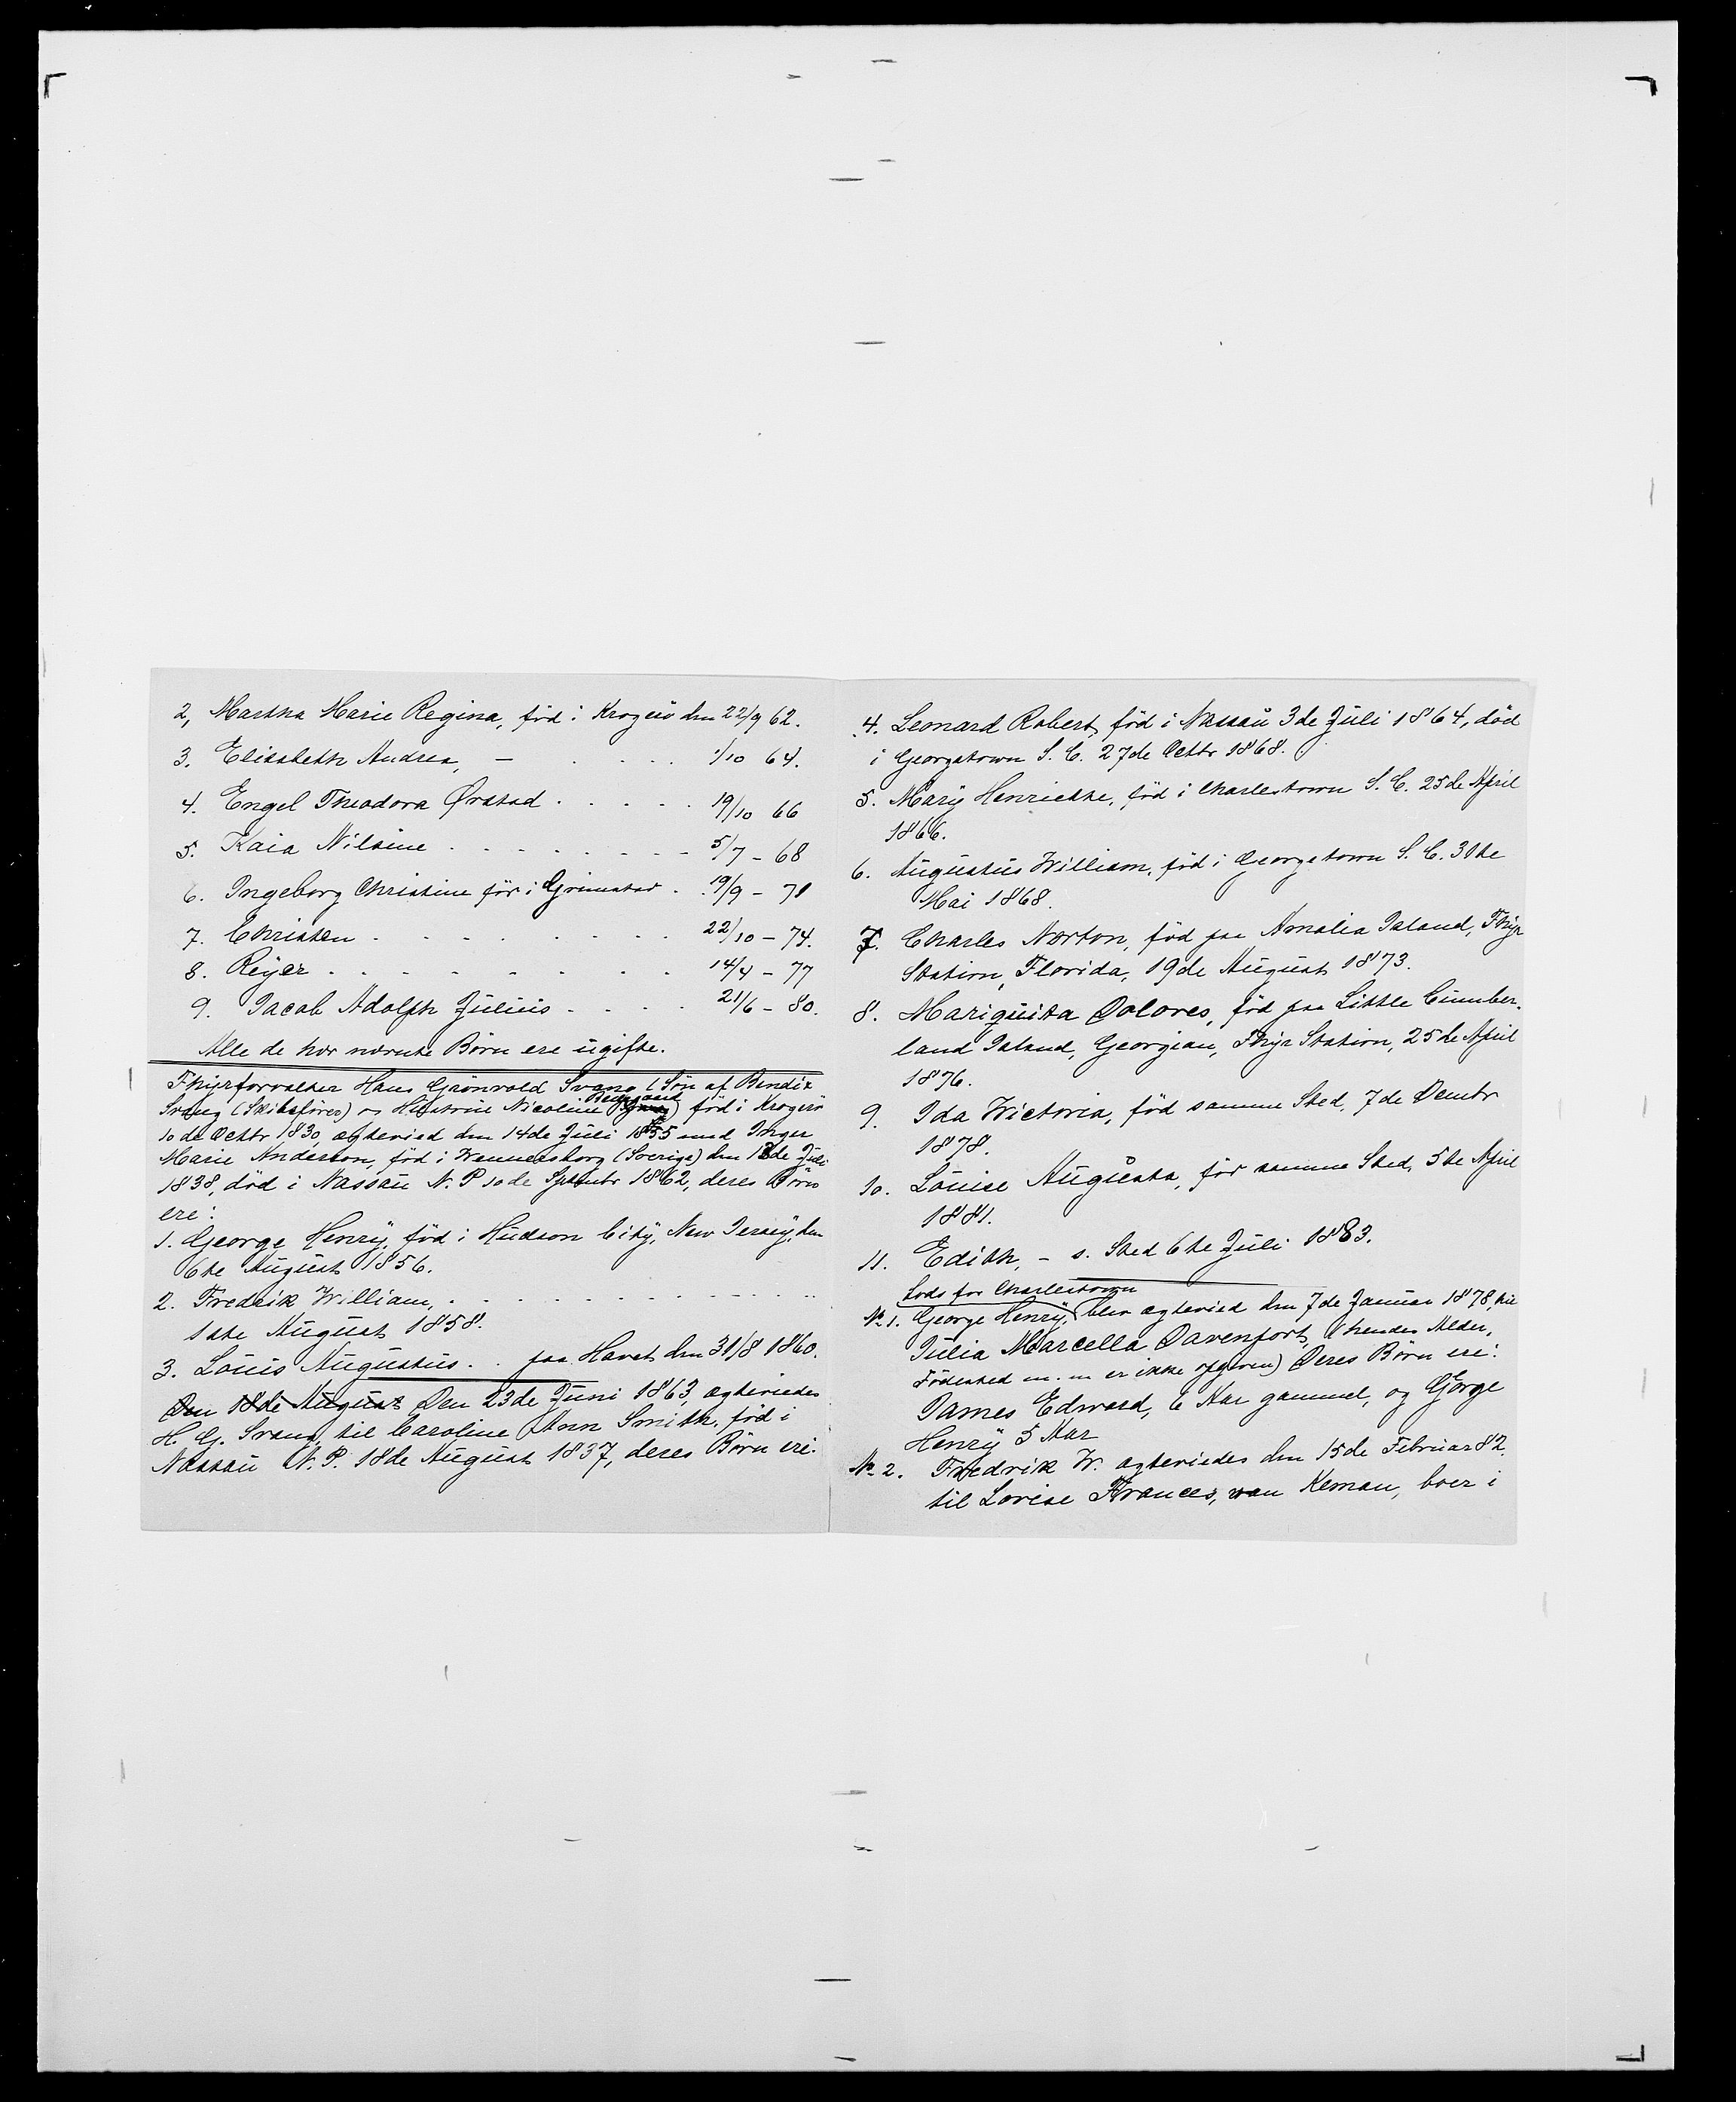 2, Martha Marie Regina, föd i Kragerö den 22/9 62.
3. Elisabeth Andrea, — . . . . 1/10 64.
4. Engel Theodora Örstad . . . . . 19/10 66
5. Kaia Nilsine . . . . . . . . . 5/7 - 68
6. Ingeborg Christine för i Grimstad . . 19/9 - 71
7. Christen . . . . . . . . 22/10 - 74.
8. Reÿer . . . . . . . . 14/4 - 77
9. Jacob Adolph Julius . . . . 21/6 - 80.
Alle de her nævnte Börn ere ugifte.
Fhyrforvalter Hans Grönvold Svang (Sön af Bendix
Svang (Skibsförer) og Hustrue Nicoline Bemgaard) föd i Kragerö
10de Octbr 1830, egtevied den 14de Juli 1855 med Inger
Marie Anderson, föd i Wennersborg (Sverige) den 12de Juli
1838, död i Nassau N. P 10de Septembr 1862, deres Börn
ere:
1. George Henrÿ, föd i Hudson Citÿ, New Jerseÿ, den
6te August 1856.
2. Fredrik William, . . . . . . . . . . . .
1ste August 1858.
3. Louis Augustus . . paa Havet den 31/8 1860.
Den 18de August Den 23de Juni 1863, egteviedes
H. G. Svang, til Caroline Ann Smith, föd i
Nassau N. P. 18de August 1837, deres Börn ere:
4. Leonard Robert, föd i Nassau 3de Juli 1864, död
i Georgetown S. C. 27de Octbr 1868.
5. Marÿ Henriette, föd i Charlestown S. C. 25de April
1866.
6. Augustus William, föd i Georgetown S. C. 30te
Mai 1868.
7. Charles Norton, föd paa Amalia Island, Fhyr
Station, Florida, 19de August 1873.
8. Mariquita Dolores, föd paa Little Cumber-
land Island, Georgian, Fhyr Station, 25de April
1876.
9. Ida Wictoria, föd samme Sted, 7de Dembr
1878.
10. Louise Augusta, för samme Sted, 5te April
1881.
11. Edith, - s. Sted 6te Juli 1883.
Lods for Charlestown
No 1. George Henrÿ, blev egteviet den 7de Januar 1878, til
Julia Marcella Davenport, (hendes Alder,
Födested m. m er ikke opgiven) Deres Börn ere:
James Edward, 6 Aar gammel, og Görge
Henrÿ 5 Aar
No 2. Fredrik W. egteviedes den 15de Februar 82.
til Lovise Frances, van Keman, boer i